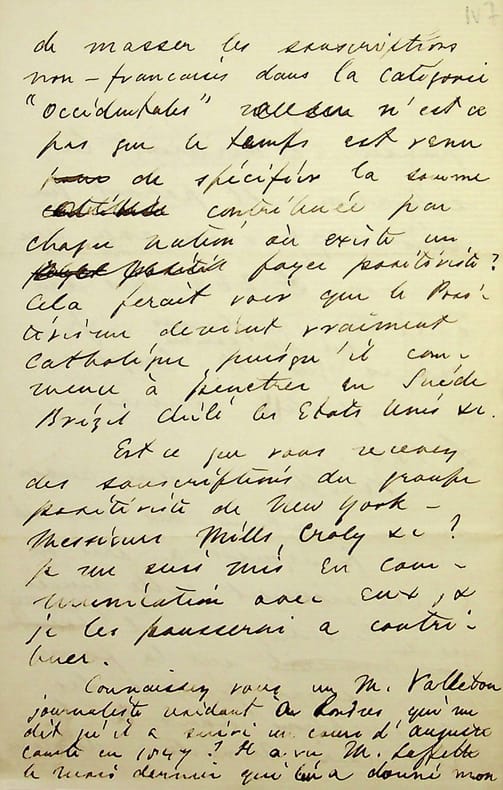 de masser les souscriptions
non-francaises dans la catégorie
"Occidentales" n'est ce
pas que le temps est venu
pour de spécifier la somme
contribuée par
chaque nation où existe un
foyer positiviste?
Cela ferait voir que le Posi-
tivisme devient vraiment
Catholique puisqu'il com-
mence à penetrer en Suéde
Brézil Chili les Etats Unis &c.
Est ce que vous recevez
des souscriptions du groupe
positiviste de New York -
Messieurs Mills, Croly &c?
je me suis mis en com-
munication avec eux, &
je les pousserai a contri-
buer.
Connaissez vous un M. Valleton
journaliste residant à Londres, qui me
dit qu'il a suivi un cours d'Auguste
Comte en 1847? Il a vu M. Laffitte
le mois dernier qui lui a donné mon